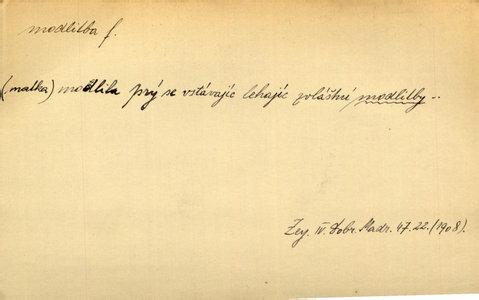 modlitba f.
(matka) modlila prý se vstávajíc lehajíc zvláštní modlitby..
Zey. IV. Dobr. Madr. 47. 22. (1908).